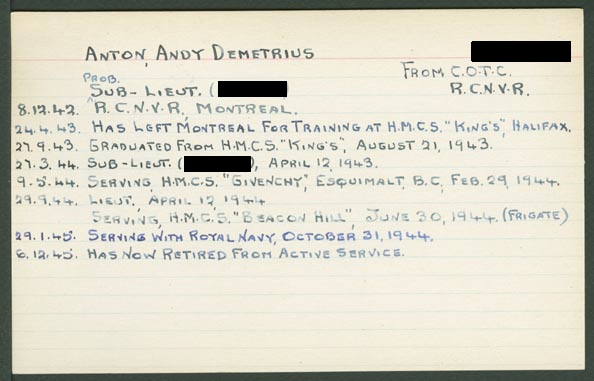 ANTON, ANDY DEMETRIUS
FROM C.O.T.C.
PROB.
SUB-LIEUT. (
R.C.N.V.R.
8.12.42. R.C.N.V.R., MONTREAL.
24.4.43. HAS LEFT MONTREAL FOR TRAINING AT H.M.C.S. "KING'S", HALIFAX.
27.9.43. GRADUATED FROM H.M.C.S. "KING'S", AUGUST 21, 1943.
27.3.44. SUB-LIEUT. ( ), APRIL 12, 1943.
9.5.44. SERVING, H.M.C.S. "GIVENCHY", ESQUIMALT, B.C., FEB. 29, 1944.
29.9.44. LIEUT., APRIL 12, 1944
SERVING, H.M.C.S. "BEACON HILL", JUNE 30, 1944. (FRIGATE)
29.1.45. SERVING WITH ROYAL NAVY, OCTOBER 31, 1944.
6.12.45. HAS NOW RETIRED FROM ACTIVE SERVICE.